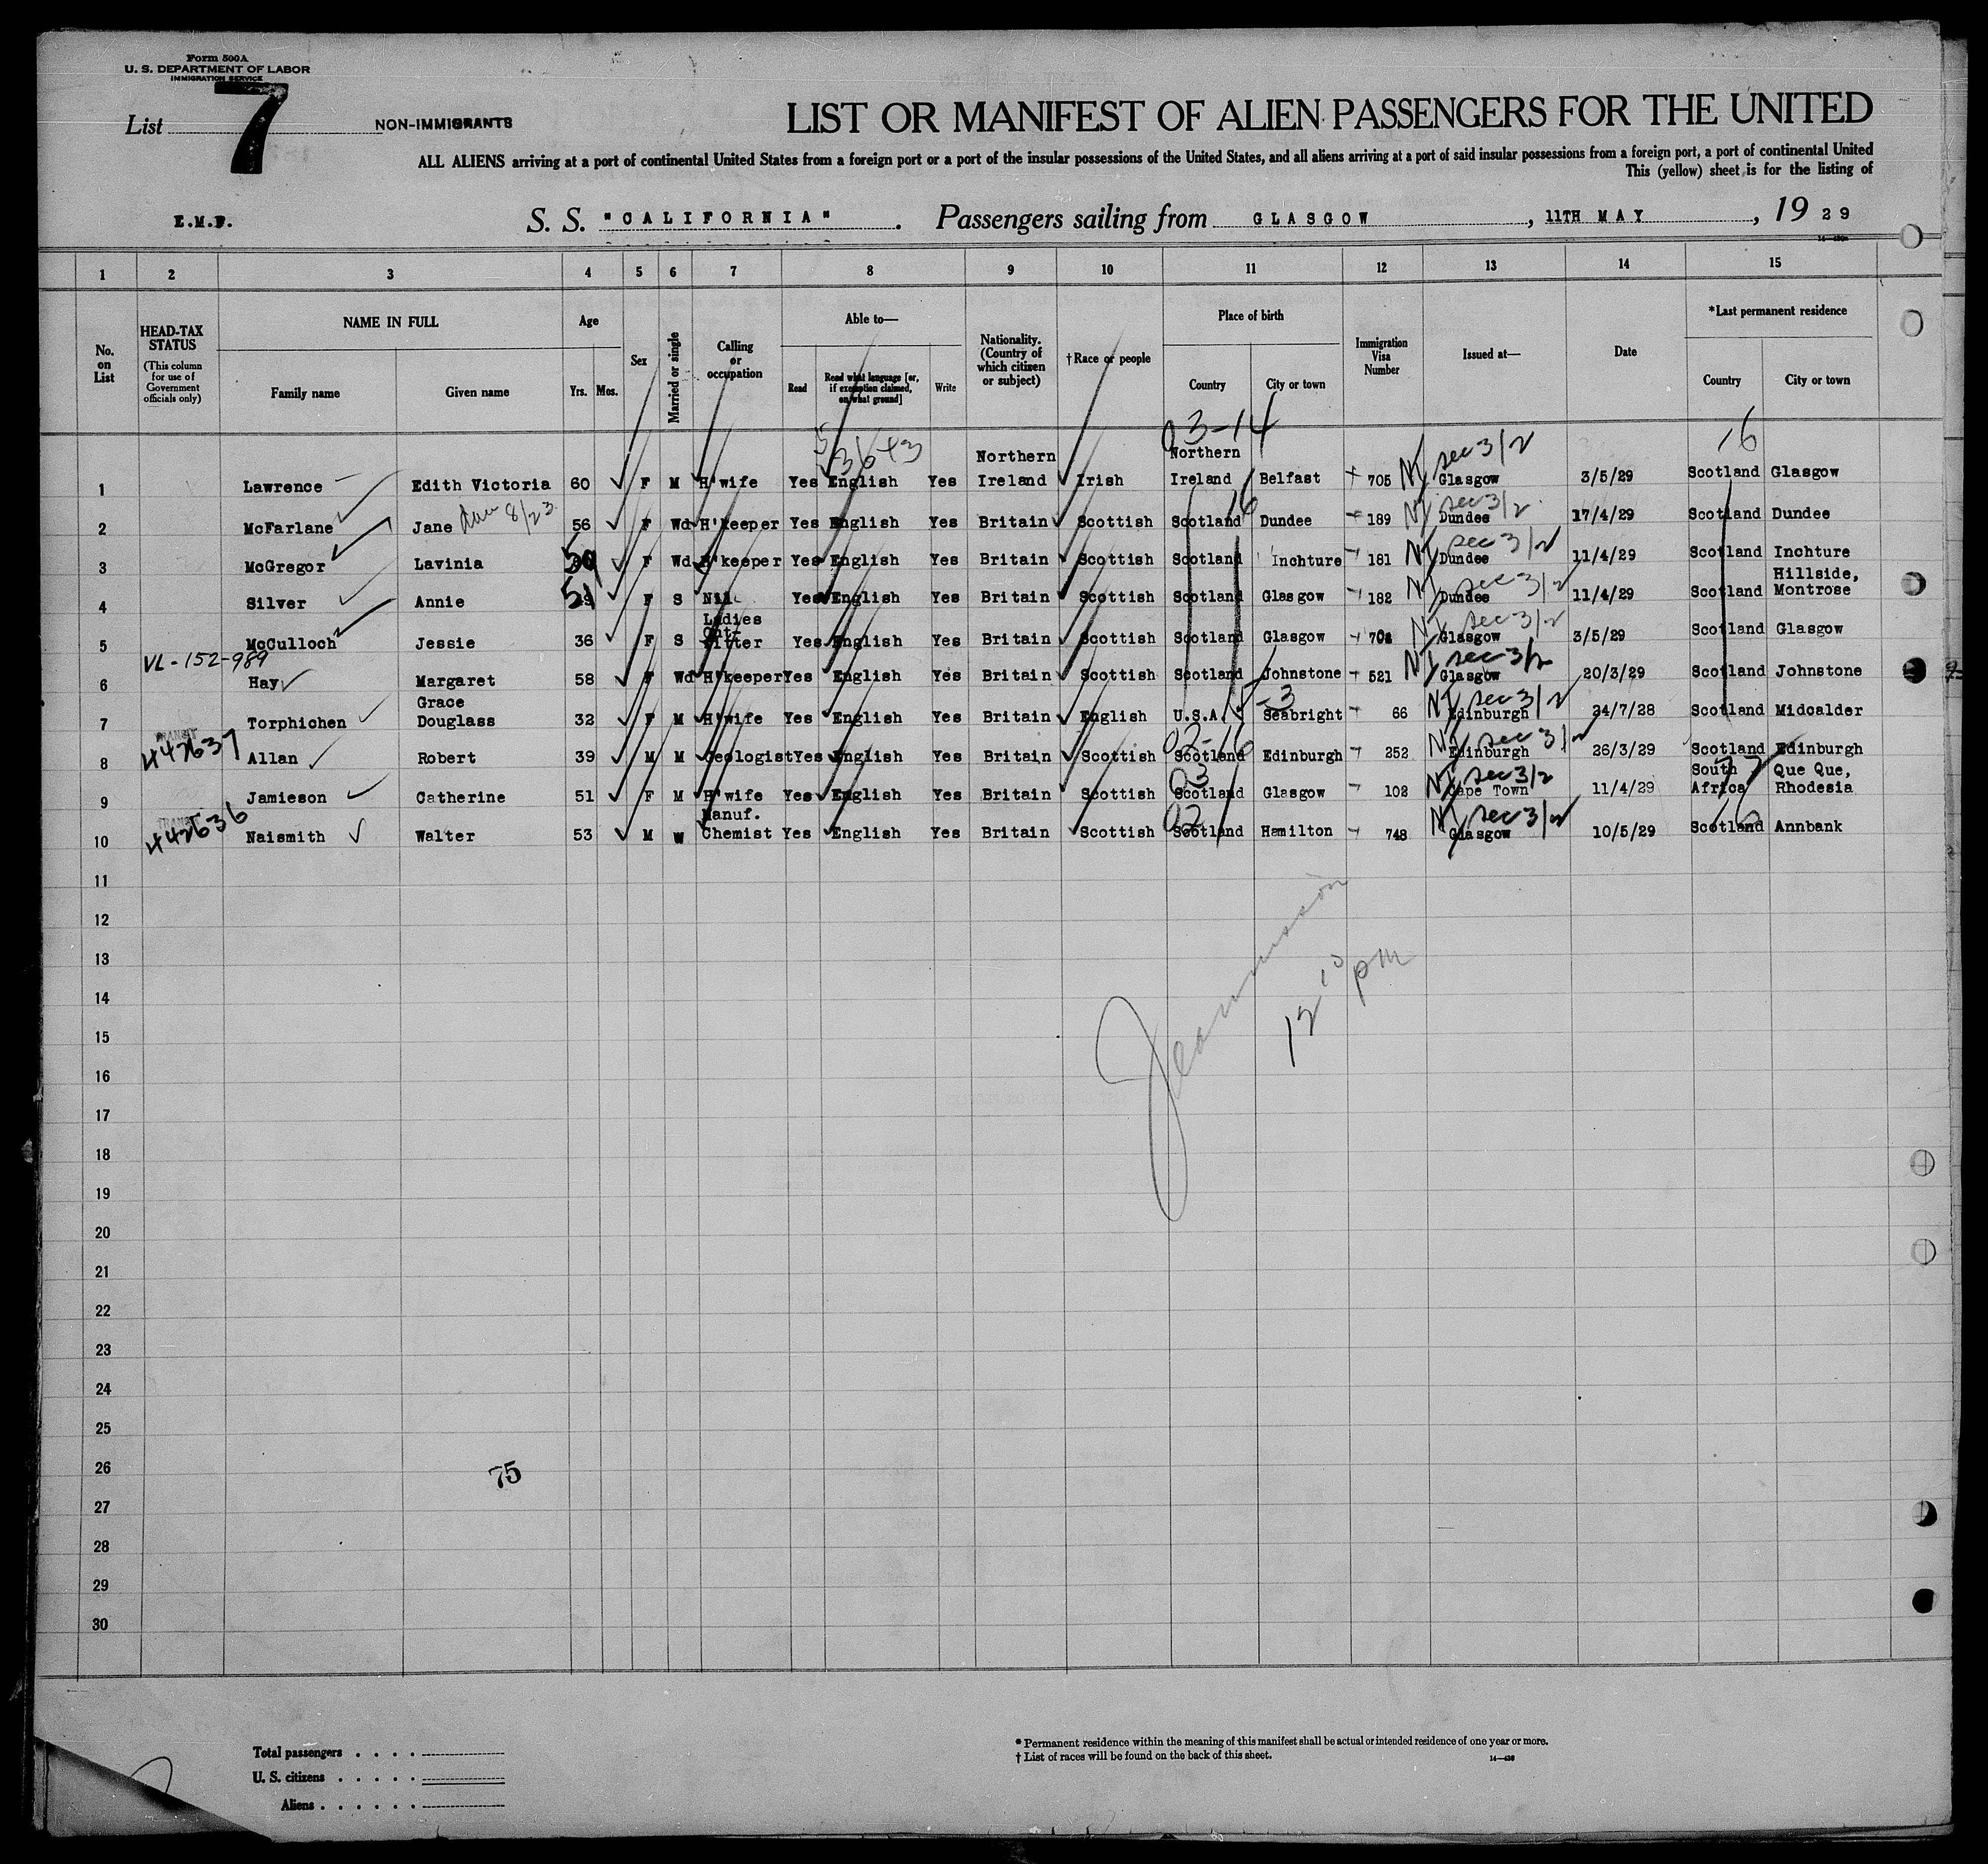 Form 500A
U. S. DEPARTMENT OF LABOR
IMMIGRATION SERVICE
List 7 NON-IMMIGRANTS
LIST OR MANIFEST OF ALIEN PASSENGERS FOR THE UNITED
ALL ALIENS arriving at a port of continental United States from a foreign port or a port of the insular possessions of the United States, and all aliens arriving at a port of said insular possessions from a foreign port, a port of continental United
This (yellow) sheet is for the listing of
E.M.F. S. S. "CALIFORNIA". Passengers sailing from GLASGOW, 11TH MAY, 1929
1 2 3 4 5 6 7 8 9 10 11 12 13 14 15
No. on List
HEAD-TAX STATUS
(This column for use of Government officials only)
NAME IN FULL
Family name Given name
Age
Yrs. Mos.
Sex
Married or single
Calling or occupation
Able to—
Read Read what language [or, if exemption claimed, on what ground] Write
Nationality. (Country of which citizen or subject)
†Race or people
Place of birth
Country City or town
Immigration Visa Number
Issued at—
Date
*Last permanent residence
Country City or town
03-14 16
1 Lawrence Edith Victoria 60 F M H'wife Yes English Yes Northern Ireland Irish Northern Ireland Belfast 705 Glasgow sec 3/2 3/5/29 Scotland Glasgow
2 McFarlane Jane 8/23 56 F Wd H'keeper Yes English Yes Britain Scottish Scotland 16 Dundee 189 Dundee sec 3/2 17/4/29 Scotland Dundee
3 McGregor Lavinia F Wd H'keeper Yes English Yes Britain Scottish Scotland Inchture 181 Dundee sec 3/2 11/4/29 Scotland Inchture
4 Silver Annie 51 F S Nil Yes English Yes Britain Scottish Scotland Glasgow 182 Dundee sec 3/2 11/4/29 Scotland Hillside, Montrose
5 McCulloch Jessie 36 F S Ladies Yes English Yes Britain Scottish Scotland Glasgow Glasgow sec 3/2 3/5/29 Scotland Glasgow
VL-152-989
6 Hay Margaret 58 F Wd H'keeper Yes English Yes Britain Scottish Scotland Johnstone 521 Glasgow sec 3/2 20/3/29 Scotland Johnstone
7 Torphichen Grace Douglass 32 F M H'wife Yes English Yes Britain English U.S.A. Seabright 66 Edinburgh sec 3/2 24/7/28 Scotland Midcalder
TRANSIT 442637
8 Allan Robert 39 M M Geologist Yes English Yes Britain Scottish Scotland Edinburgh 252 Edinburgh sec 3/2 26/3/29 Scotland Edinburgh
9 Jamieson Catherine 51 F M H'wife Yes English Yes Britain Scottish 03 Scotland Glasgow 102 Cape Town sec 3/2 11/4/29 South Africa Que Que, Rhodesia
TRANSIT 442636
10 Naismith Walter 53 M W Manuf. Chemist Yes English Yes Britain Scottish 02 Scotland Hamilton 748 Glasgow sec 3/2 10/5/29 Scotland Annbank
11
12
13
14
15
16
17
18
19
20
21
22
23
24
25
26
27
28
29
30
12 10 pm
75
Total passengers
U. S. citizens
Aliens
* Permanent residence within the meaning of this manifest shall be actual or intended residence of one year or more.
† List of races will be found on the back of this sheet.